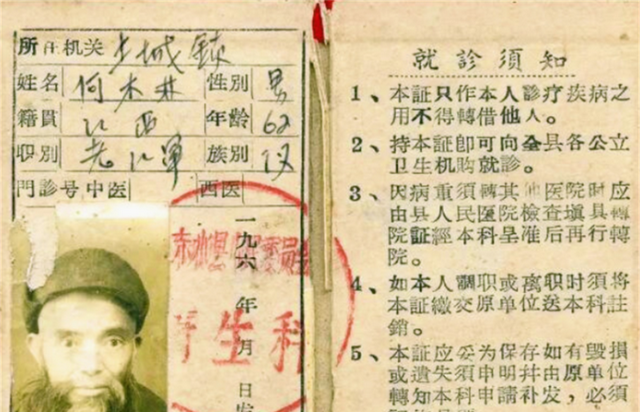 所在机关 土城鎮
姓名 何木林 性別 男
籍貫 江西 年龄 62
职別 老红軍 族別 汉
門診号中医 西医
一九六 年 月 日发
生科
就診須知
1、本証只作本人診疗疾病之
用不得轉借他人。
2、持本証即可向全县各公立
卫生机购就診。
3、因病重須轉其他医院时应
由县人民医院檢查塡具轉
院証經本科呈准后再行轉
院。
4、如本人調职或离职时須将
本証繳交原单位送本科註
銷。
5、本証应妥为保存如有毁損
或遗失須申明幷由原单位
轉知本科申請补发，必須